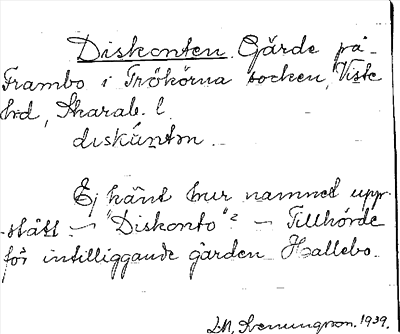 Diskonten. Gärde på
Frambo i Trökörna socken, Viste
hd, Skarab. l.
diskùntǝn.
Ej känt hur namnet upp-
stått – "Diskonto"? – Tillhörde
för intilliggande gården Hallebo.
Svenungson. 1939.